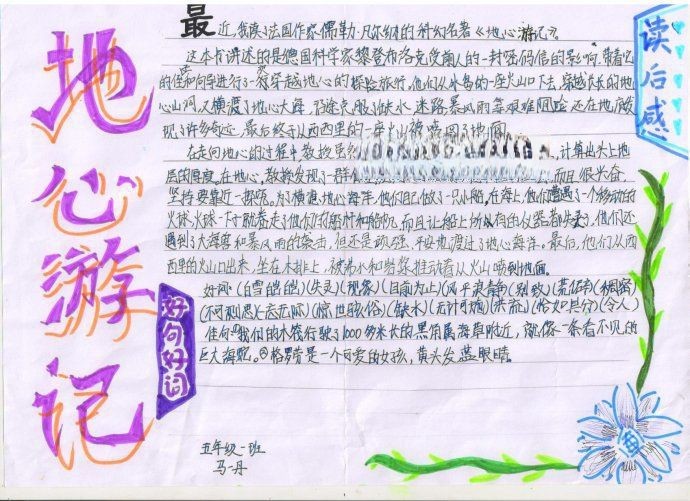 地心游记
读后感
最近,我读了法国作家儒勒·凡尔纳的科幻名著《地心游记》。
这本书讲述的是德国科学家黎登布洛克受前人的一封密码信的影响,带着他
的侄和向导进行了一次穿越地心的探险旅行。他们从冰岛的一座火山口下去,穿越的地
心山洞,又横渡了地心大海,沿途克服了缺水、迷路、暴风雨等艰难困险,还在地下发
现了许多奇迹,最后终于从西西里的一座火山被喷回了地面
在走向地心的过程中教授 计算出头上地
层的厚度。在地心,教授发现了一群 而且很兴奋,
坚持要靠近一部落。为了横渡地心海洋,他们自己做了一只小船。在海上,他们遭遇了一个移动的
火球,火球一下就卷走了他们的船桅和船帆,而且让船上所有的仪器都失灵,他们还
遇到了大海兽和暴风雨的袭击,但还是顽强、平安地渡过了地心海洋。最后,他们从西
西里的火山口出来,坐在木排上,被沸水和岩浆推动着从火山喷到地面。
好词:(白雪皑皑)(失灵)(现象)(目前为止)(风平浪静)(别致)(稠密)
(不可思议)(无边无际)(惊世骇俗)(缺水)(无计可施)(洪流)(恰如其分)(令人)
佳句:①我们的木筏行驶了1000多米长的黑角属海草附近,就像一条看不见的
巨大海蛇。②格劳蓓是一个可爱的女孩,黄头发蓝眼睛。
好句好词
五年级一班
马丹